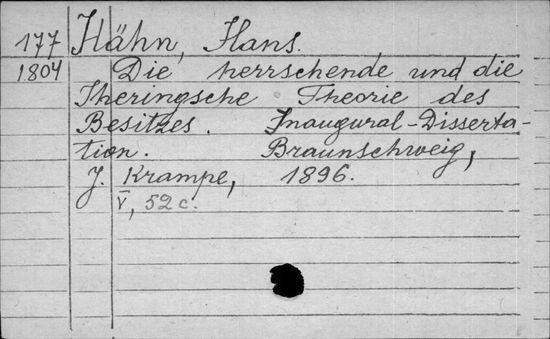 177 Hähn, Hans.
1804 Die herrschende und die
Iheringsche Theorie des
Besitzes. Inaugural-Disserta-
tion. Braunschweig,
J. Krampe, 1896.
V, 52 c.